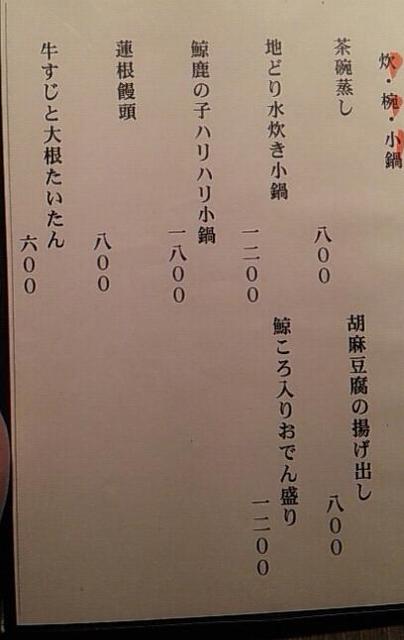 炊・椀・小鍋
茶碗蒸し
八00
胡麻豆腐の揚げ出し
八00
地どり水炊き小鍋
一二00
鯨ころ入りおでん盛り
一二00
鯨鹿の子ハリハリ小鍋
一八00
蓮根饅頭
八00
牛すじと大根たいたん
六00